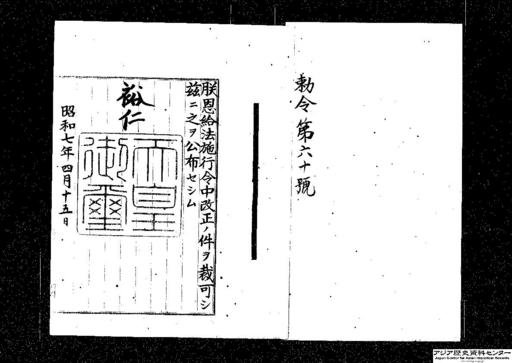 勅令第六十號
朕恩給法施行令中改正ノ件ヲ裁可シ
茲ニ之ヲ公布セシム
裕仁
天皇
御璽
昭和七年四月十五日
アジア歴史資料センター
Japan Center for Asian Historical Records